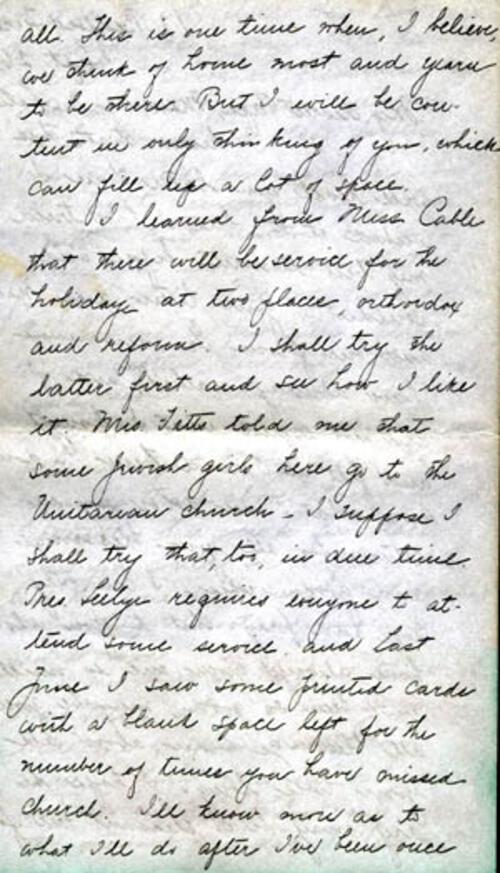 all. This is one time when, I believe,
we think of home most and yearn
to be there. But I will be con-
tent in only thinking of you, which
can fill up a lot of space.
I learned from Miss Cable
that there will be service for the
holiday at two places, orthodox
and reform. I shall try the
latter first and see how I like
it. Mrs. Titts told me that
some Jewish girls here go to the
Unitarian church - I suppose I
shall try that, too, in due time.
Pres. Seelye requires everyone to at-
tend some service and last
June I saw some printed cards
with a blank space left for the
number of times you have missed
church. I'll know more as to
what I'll do after I've been once